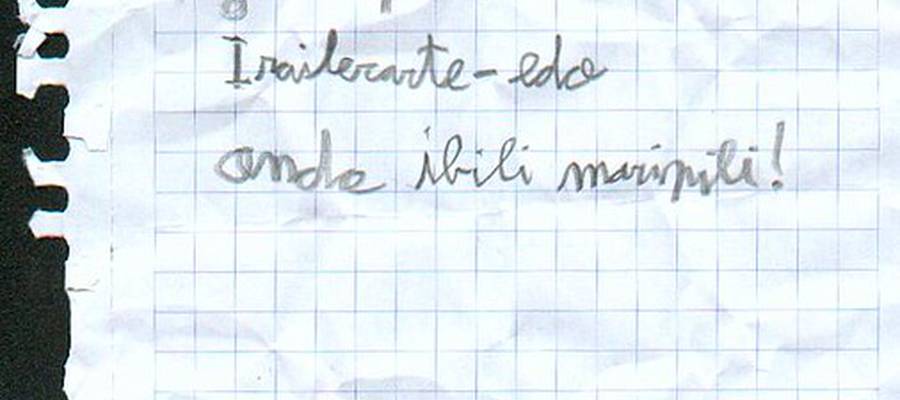 Irailerarte-edo
ondo ibili maripili!